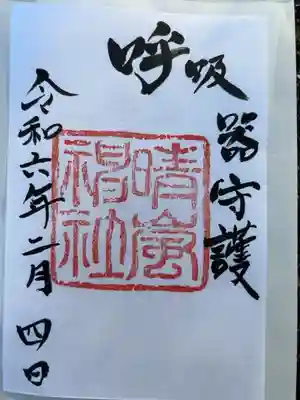 呼吸器守護
晴嵐神社
令和六年二月四日